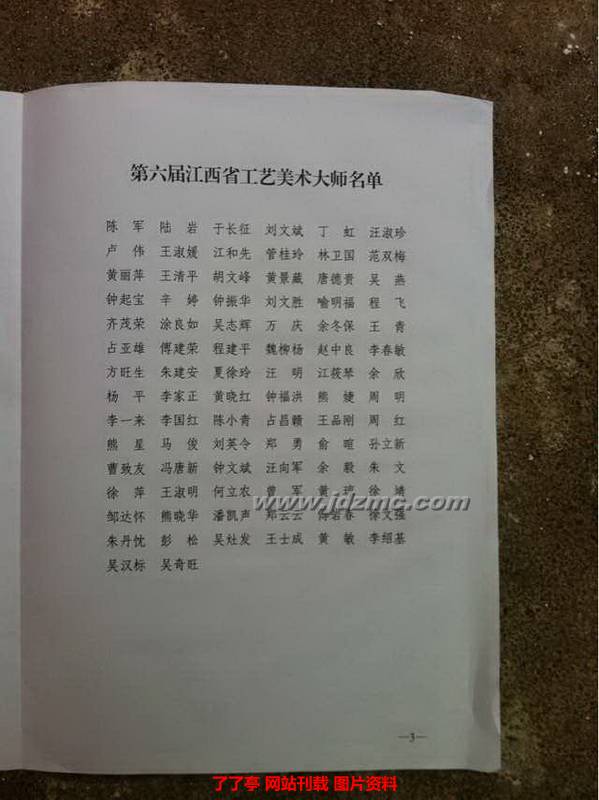 第六届江西省工艺美术大师名单
陈军 陆岩 于长征 刘文斌 丁虹 汪淑珍
卢伟 王淑媛 江和先 管桂玲 林卫国 范双梅
黄丽萍 王清平 胡文峰 黄景藏 唐德贵 吴燕
钟起宝 辛婷 钟振华 刘文胜 喻明福 程飞
齐茂荣 涂良如 吴志辉 万庆 余冬保 王青
占亚雄 傅建荣 程建平 魏柳杨 赵中良 李春敏
方旺生 朱建安 夏徐玲 汪明 江筱琴 余欣
杨平 李家正 黄晓红 钟福洪 熊婕 周明
李一来 李国红 陈小青 占昌赣 王品刚 周红
熊星 马俊 刘英令 郑勇 俞暄 孙立新
曹致友 冯唐新 钟文斌 汪向军 余毅 朱文
徐萍 王淑明 何立农 曾军 黄 徐靖
邹达怀 熊晓华 潘凯声 郑云云 傅岩春 徐文强
朱丹忱 彭松 吴灶发 王士成 黄敏 李绍基
吴汉标 吴奇旺
www.jdzmc.com
—3—
了了亭 网站刊载 图片资料